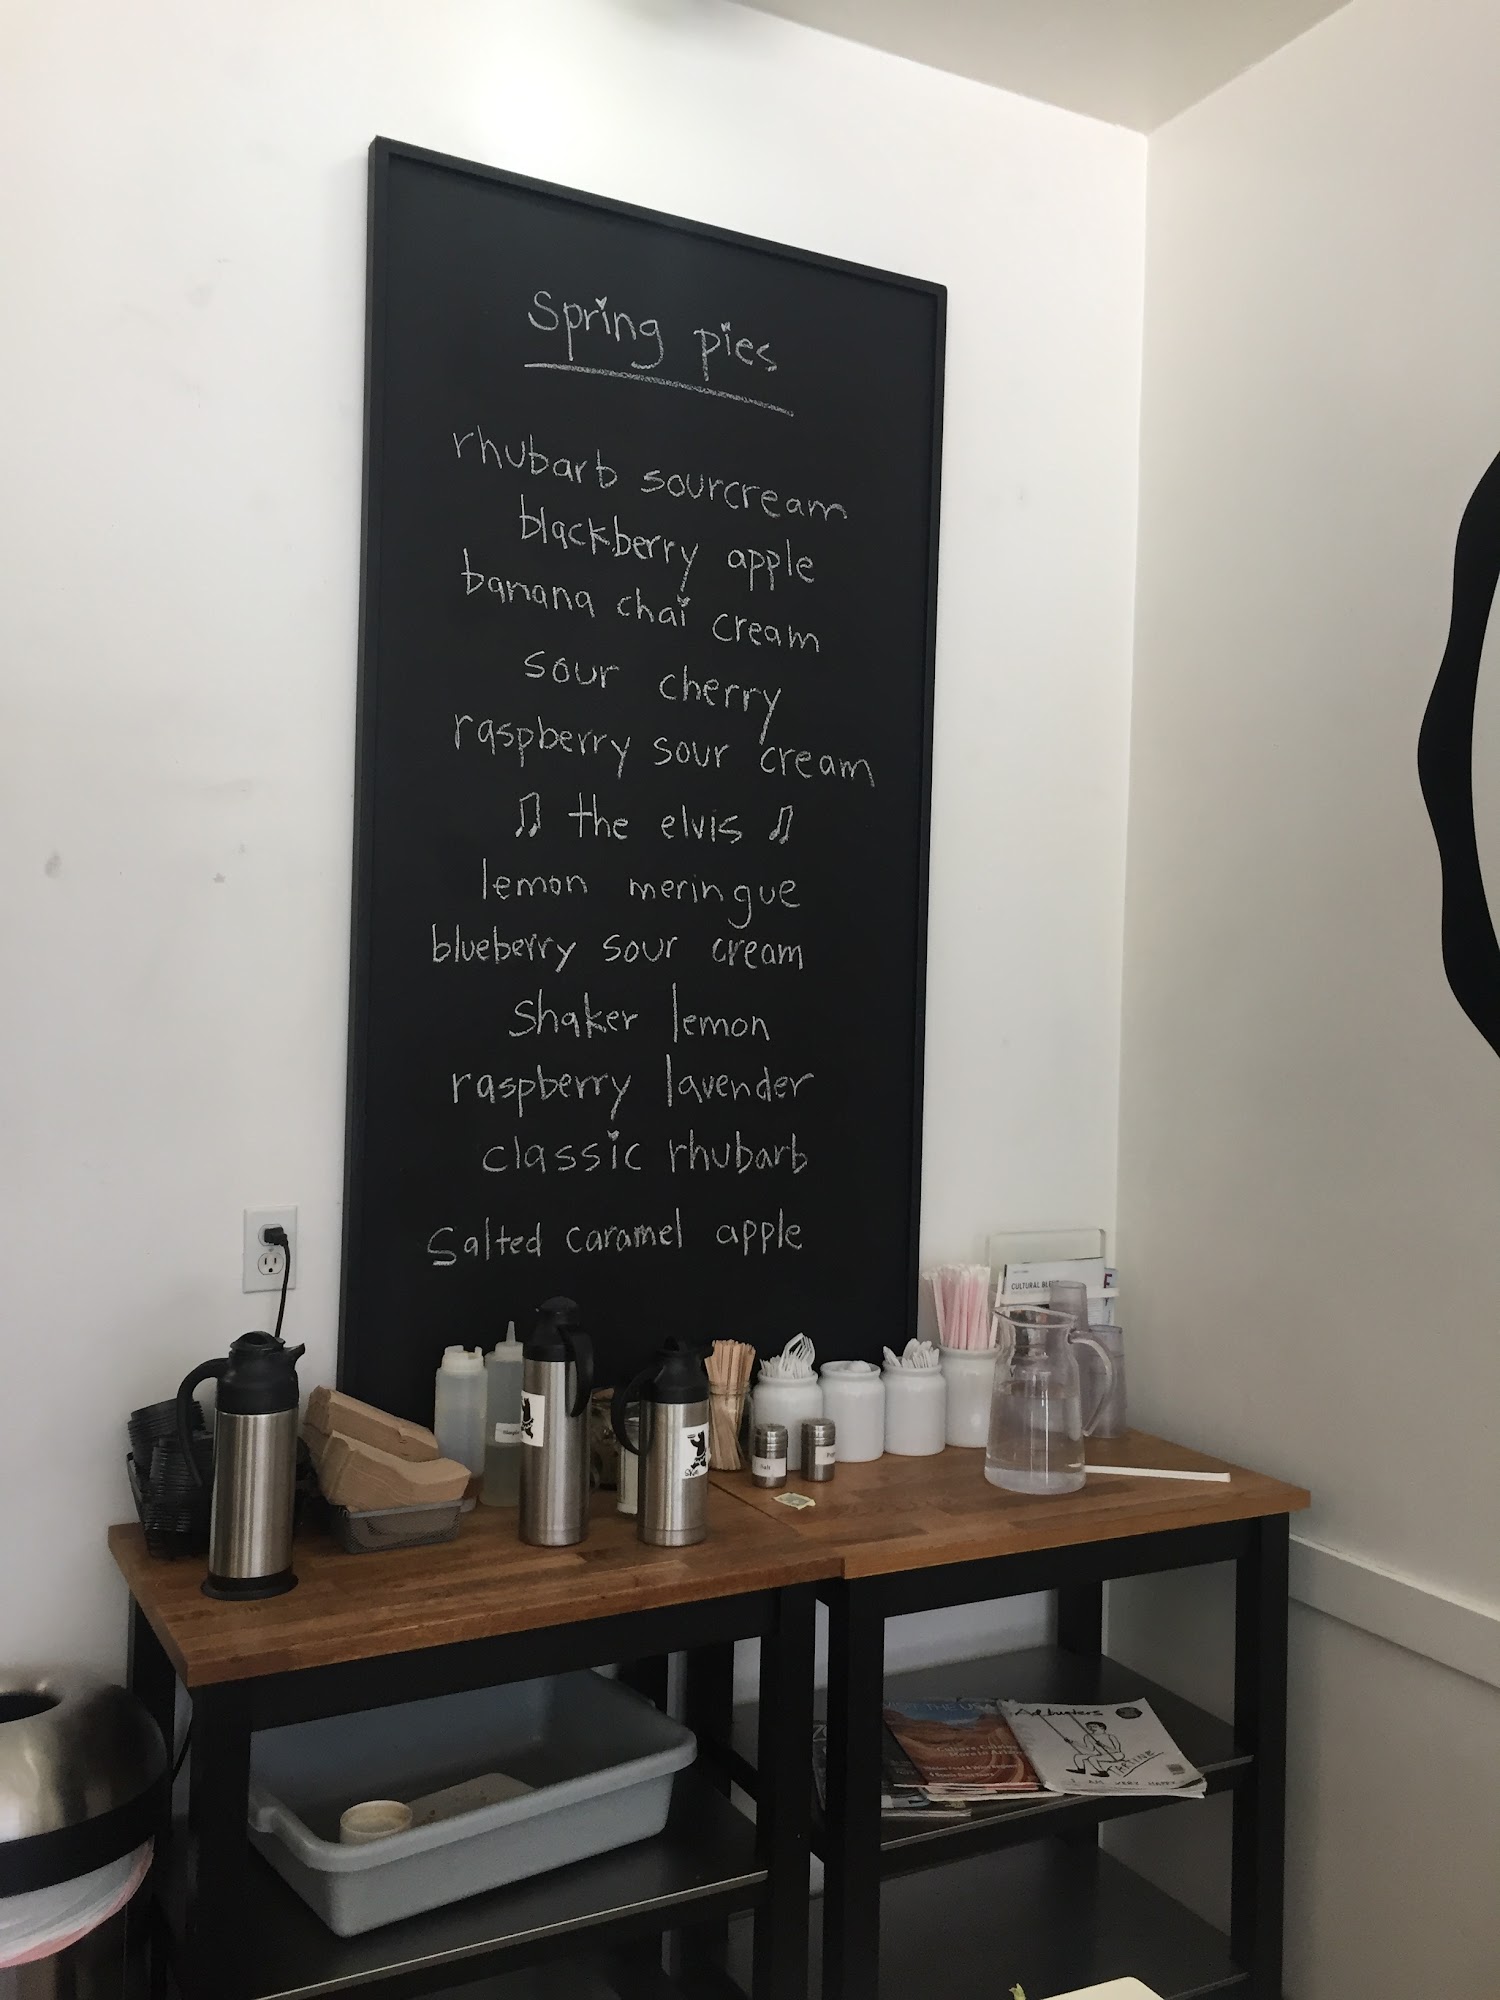 Spring pies
rhubarb sourcream
blackberry apple
banana chai cream
sour cherry
raspberry sour cream
the elvis
lemon meringue
blueberry sour cream
Shaker lemon
raspberry lavender
classic rhubarb
Salted caramel apple
CULTURAL
Salt
VISIT THE USA
Adbusters
TARTINE